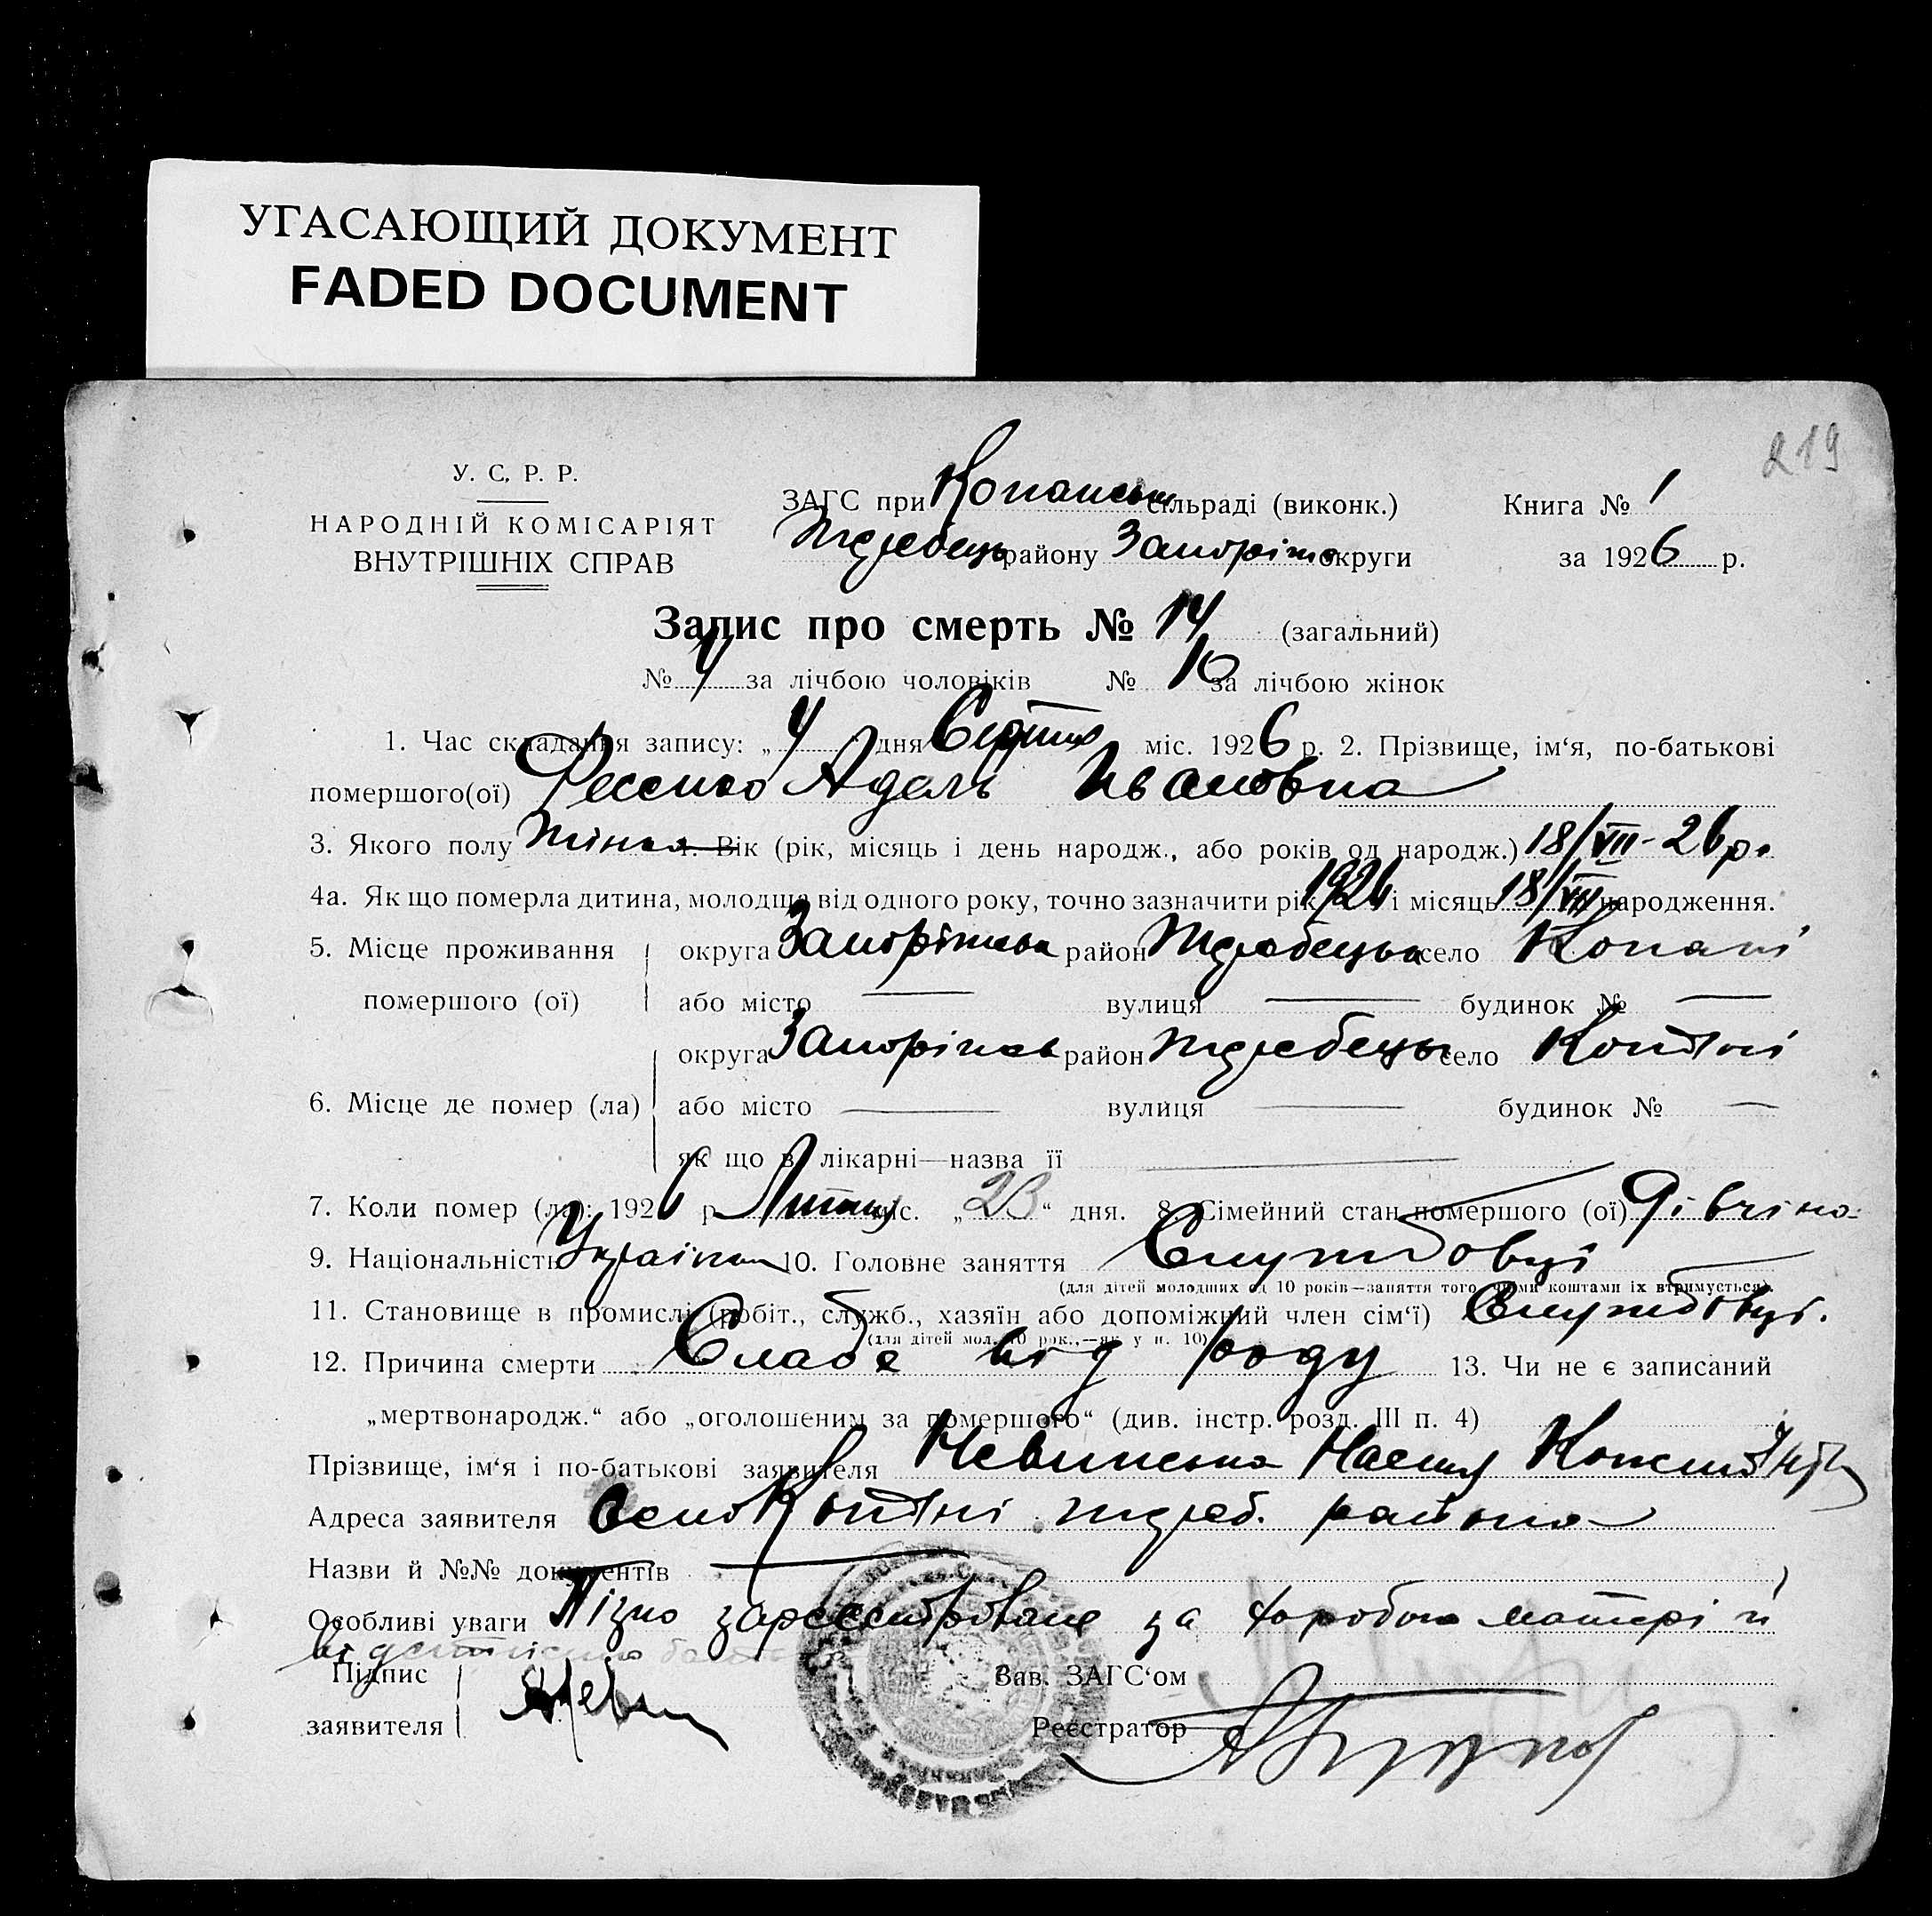 УГАСАЮЩИЙ ДОКУМЕНТ
FADED DOCUMENT
219
У. С. Р. Р.
НАРОДНІЙ КОМІСАРІЯТ
ВНУТРІШНІХ СПРАВ
ЗАГС при Копанськ сільраді (виконк.)
Жеребець району Запоріж округи
Книга № 1
за 1926 р.
Запис про смерть № 14 (загальний)
№ 4 за лічбою чоловіків № 10 за лічбою жінок
1. Час складання запису: „ 4 “ дня Серпня міс. 1926 р. 2. Прізвище, ім‘я, по-батькові
помершого(ої) Фесенко Адель Ивановна
3. Якого полу жіноч 4. Вік (рік, місяць і день народж., або років од народж.) 18/VII-26 р.
4а. Як що померла дитина, молодша від одного року, точно зазначити рік 1926 і місяць 18/VII народження.
5. Місце проживання помершого (ої) округа Запоріжська район Жеребецьк село Копані
або місто — вулиця — будинок № —
6. Місце де помер (ла) округа Запоріжськ район Жеребецьк село Копані
або місто — вулиця — будинок № —
як що в лікарні—назва її —
7. Коли помер (ла): 1926 р. Липня міс. „ 23 “ дня. 8. Сімейний стан помершого (ої) дівчіна
9. Національність Україн 10. Головне заняття Службовці
(для дітей молодших од 10 років—заняття того, чиїми коштами їх втримується).
11. Становище в промислі (робіт., служб., хазяїн або допоміжний член сім‘ї) Службовці.
(для дітей мол. 10 рок.,—як у п. 10)
12. Причина смерти Слабе від роду 13. Чи не є записаний
„мертвонародж.“ або „оголошеним за помершого“ (див. інстр. розд. III п. 4)
Прізвище, ім‘я і по-батькові заявителя
Адреса заявителя село Копані жереб. району
Назви й №№ документів —
Особливі уваги Пізно зареєстроване за хоробою матері й
відсутністю
Підпис заявителя
Зав. ЗАГС‘ом
Реєстратор